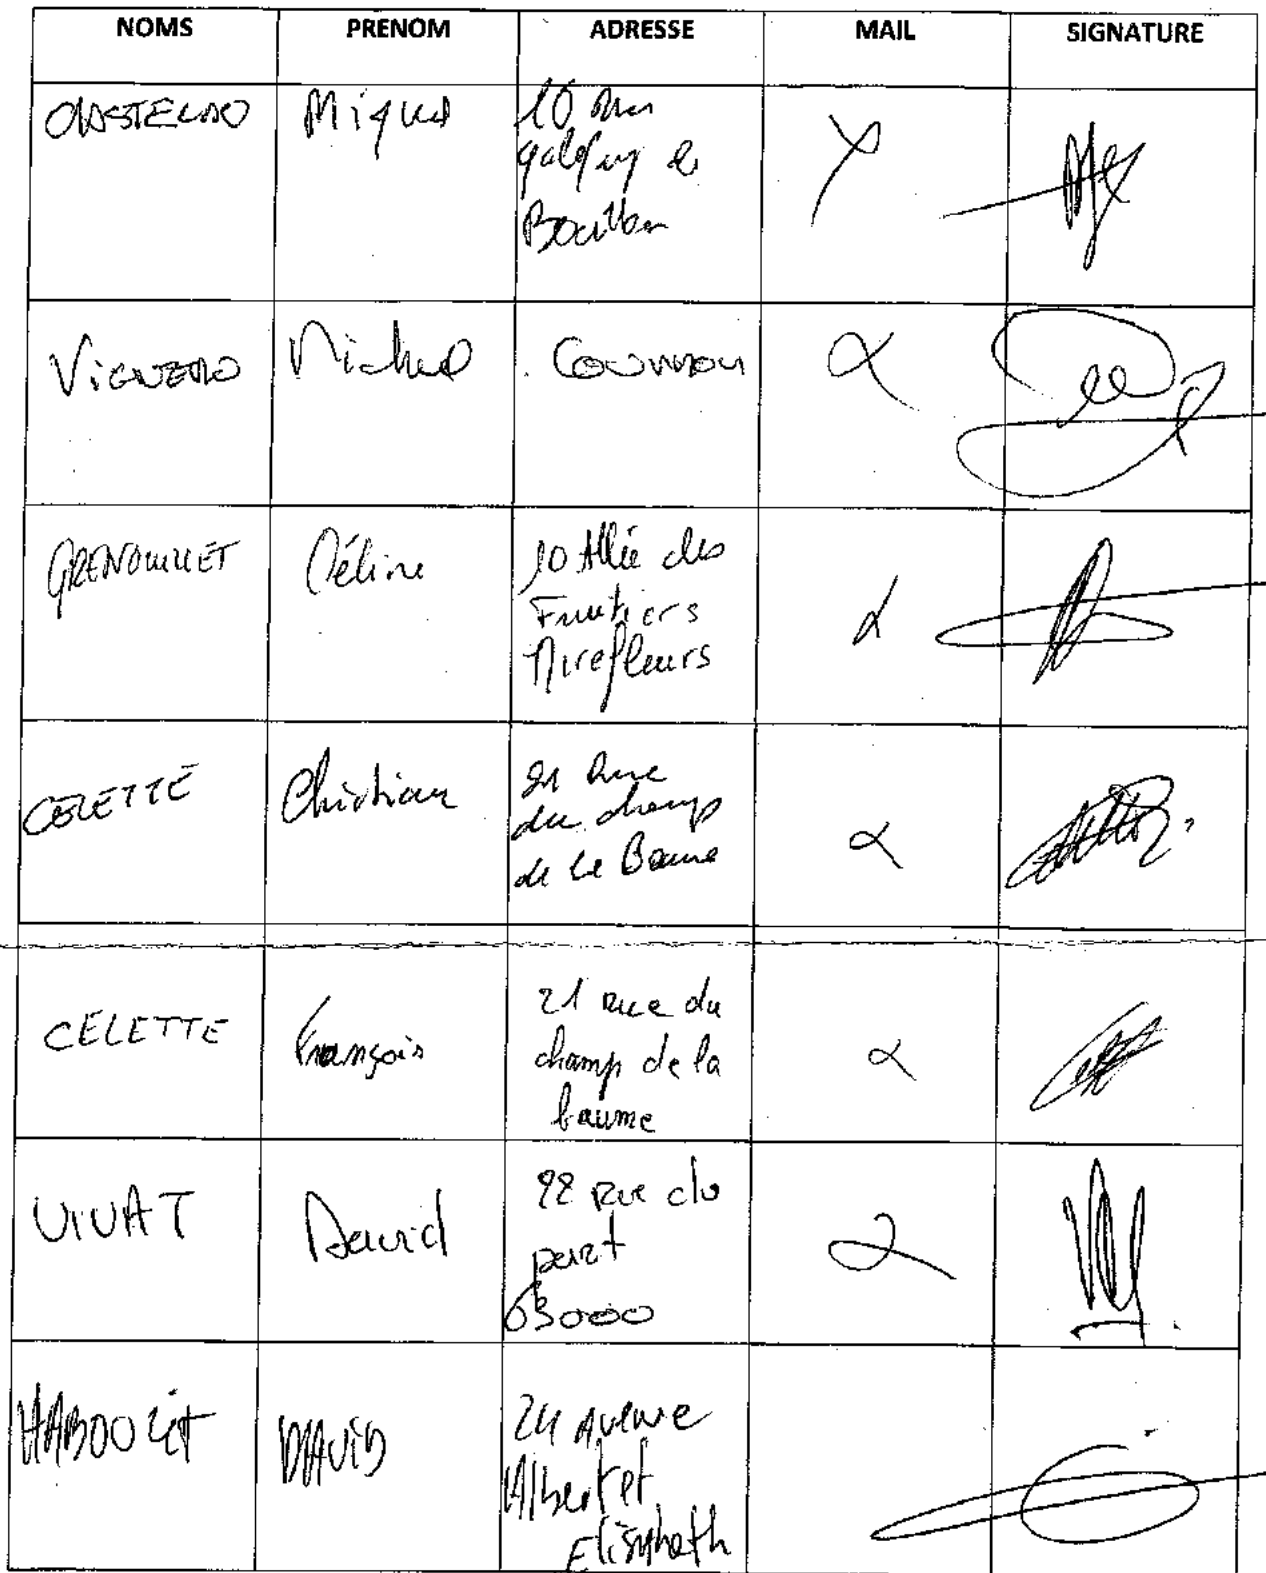 NOMS PRENOM ADRESSE MAIL SIGNATURE
Miguel 10
de
X
Michel Cournon
GRENOUILLET Céline 10 Allée des
Fruitiers
Mirefleurs
CELETTE Christian 21 Rue
du champ
de la Baume
CELETTE François 21 rue du
champ de la
baume
VIVAT David 22 rue du
port
63000
HABOUZIT DAVID 24 Avenue
Albert et
Elisabeth